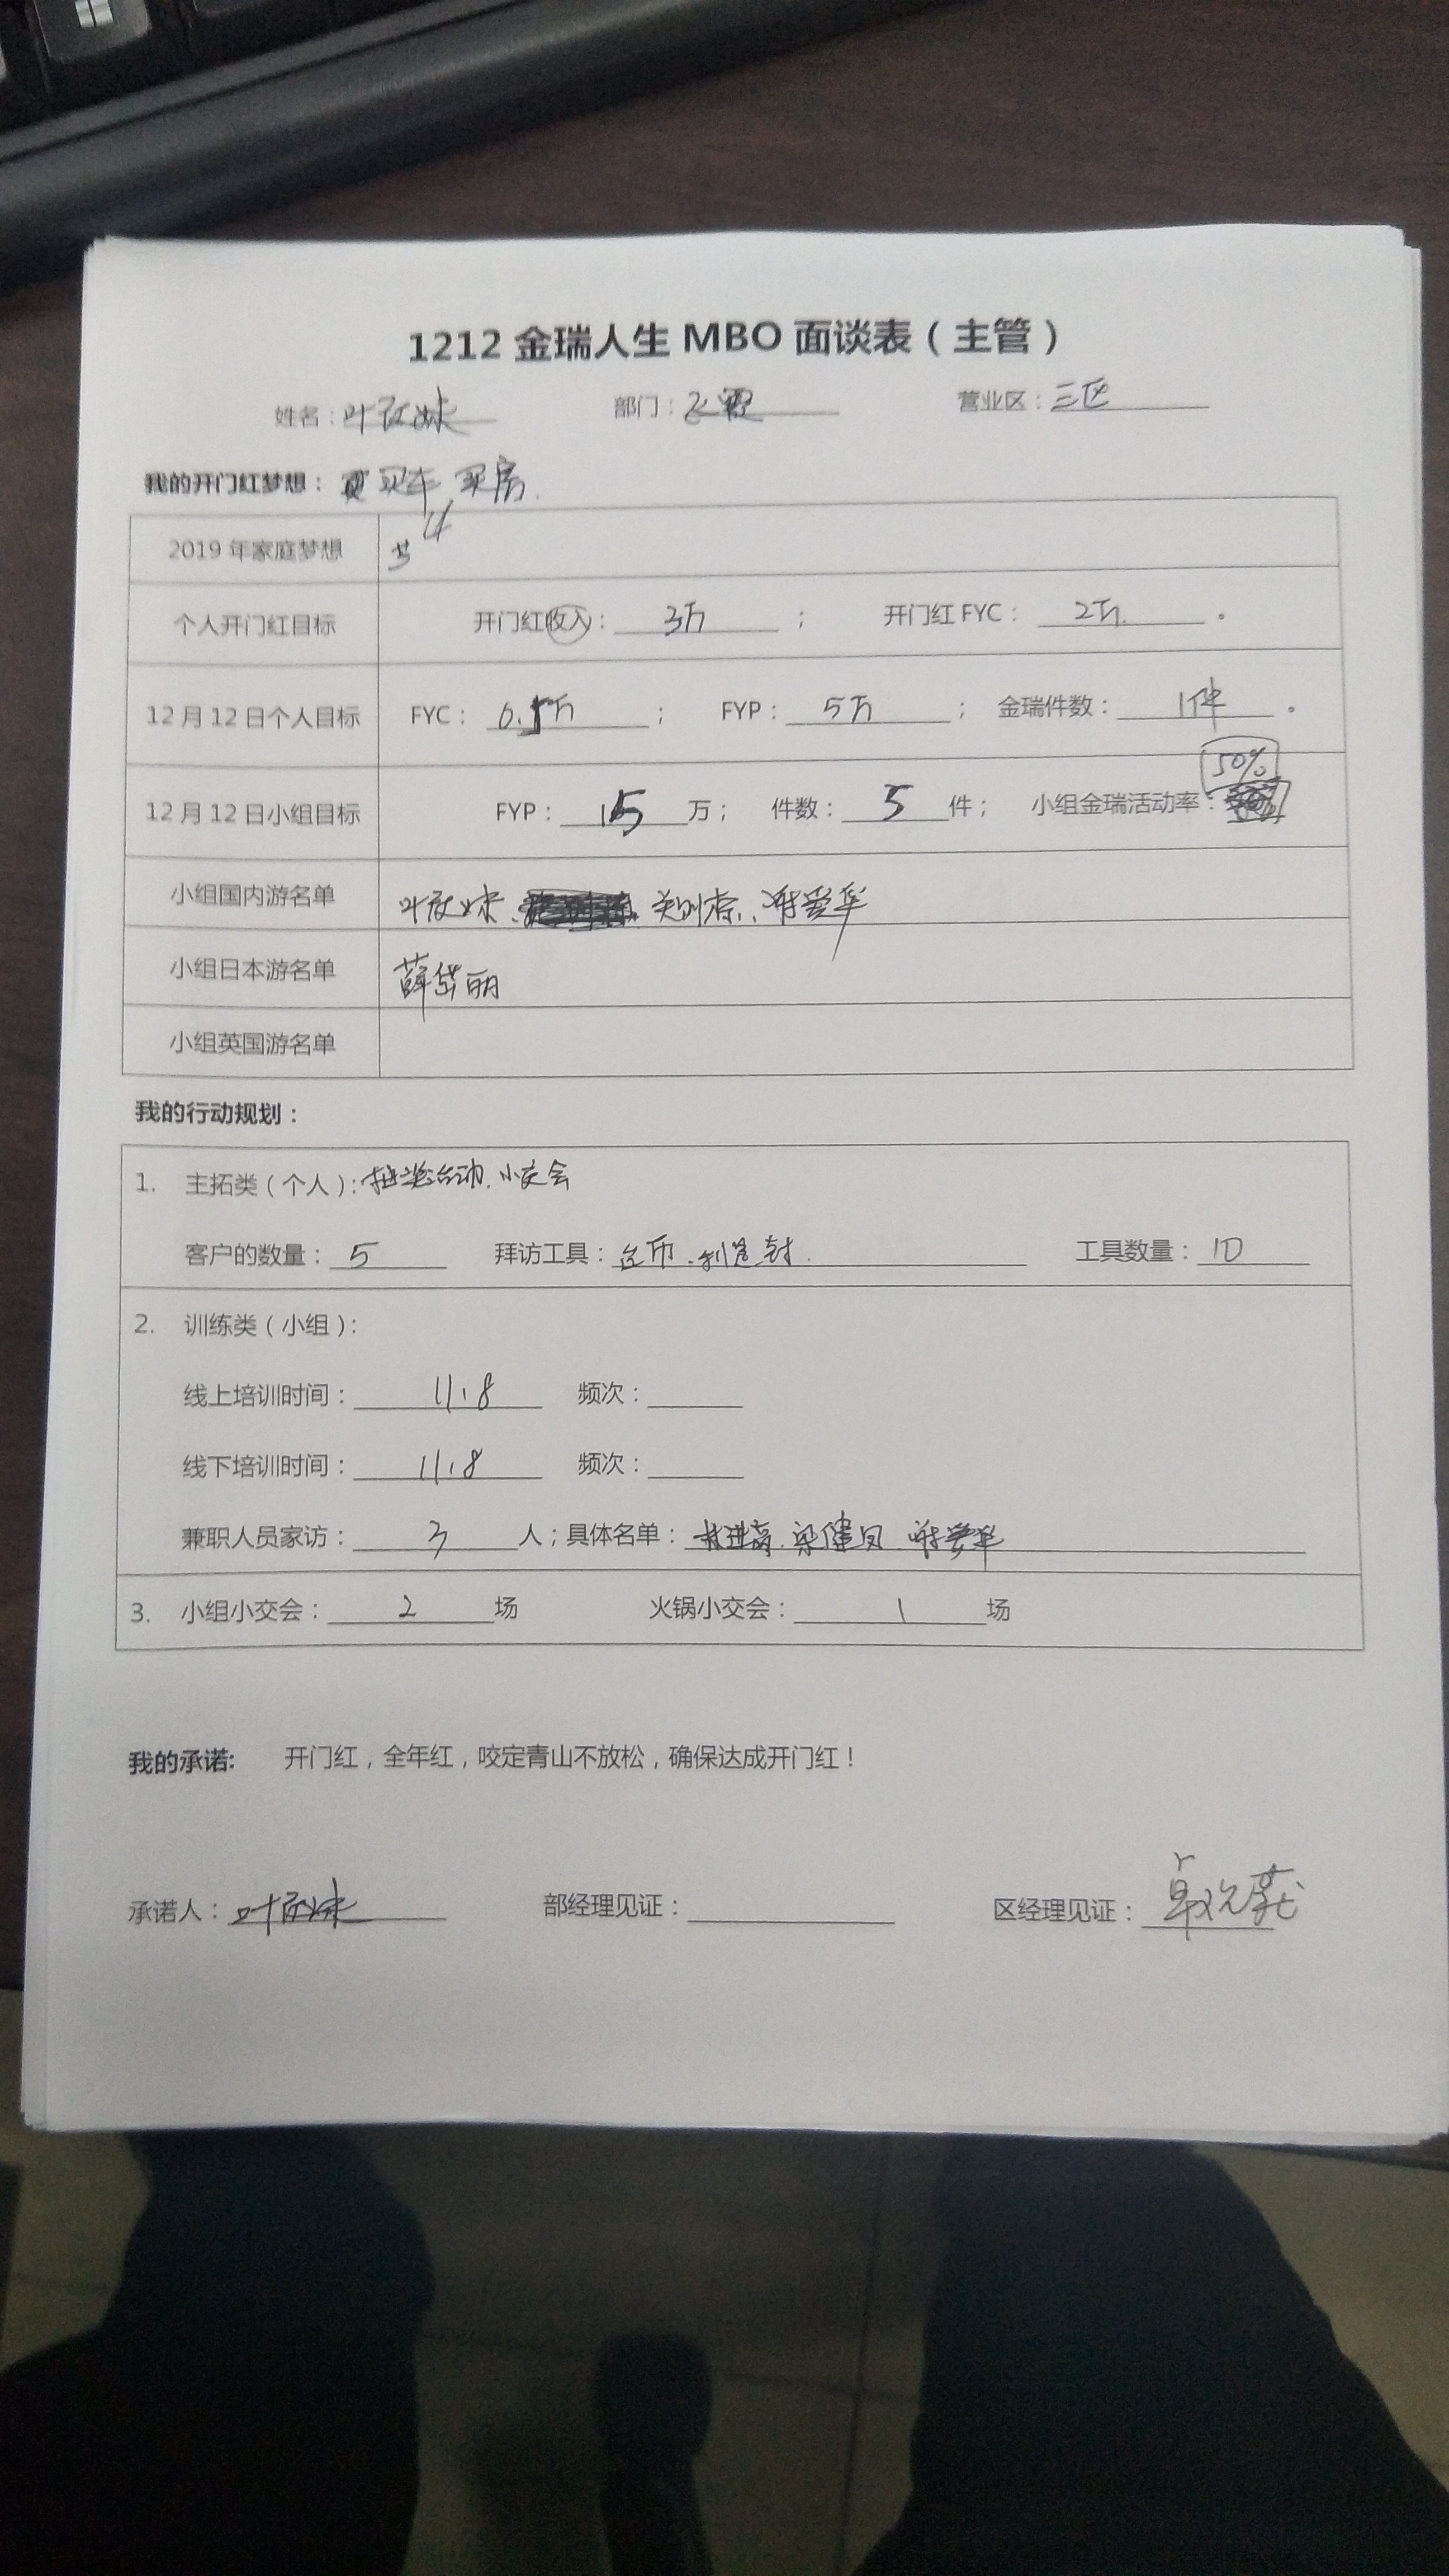 1212 金瑞人生 MBO 面谈表（主管）
姓名： 部门： 营业区：三区
我的开门红梦想： 买车 买房
2019 年家庭梦想
个人开门红目标 开门红收入：3万； 开门红 FYC：2万。
12 月 12 日个人目标 FYC：0.5万； FYP：5万； 金瑞件数：1件。
50%
12 月 12 日小组目标 FYP：15万； 件数：5件； 小组金瑞活动率：
小组国内游名单
小组日本游名单 薛岱丽
小组英国游名单
我的行动规划：
1. 主拓类（个人）：抽奖活动、小交会
客户的数量：5 拜访工具： 工具数量：10
2. 训练类（小组）：
线上培训时间：11.8 频次：
线下培训时间：11.8 频次：
兼职人员家访：3 人；具体名单：
3. 小组小交会：2 场 火锅小交会：1 场
我的承诺: 开门红，全年红，咬定青山不放松，确保达成开门红！
承诺人： 部经理见证： 区经理见证：